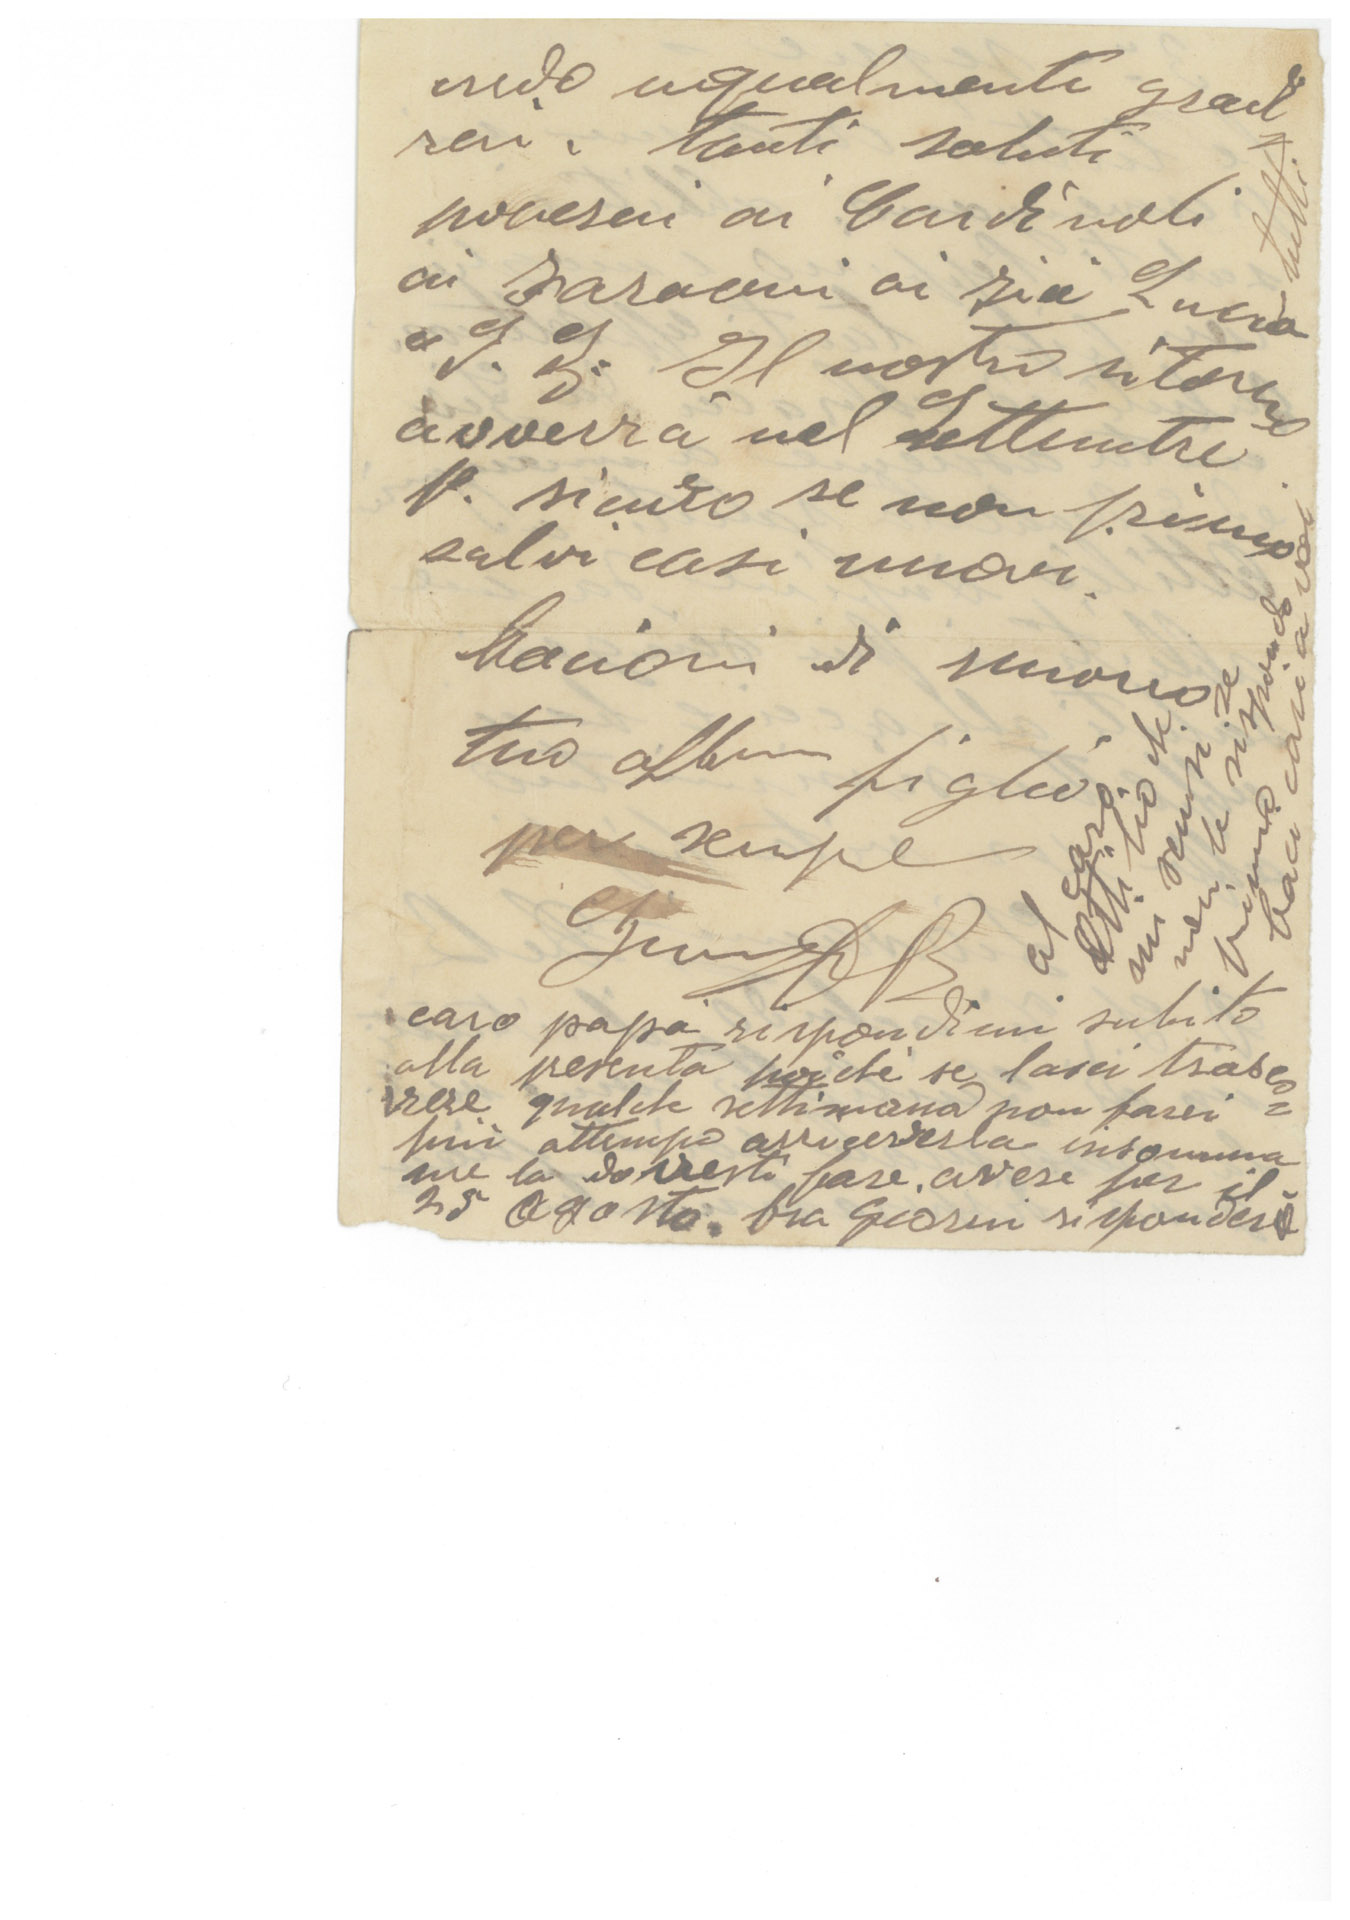 credo ugualmente gradi=
rai. tanti saluti
porgerai ai Cardinali
ai ai zii Lucia
e Il nostro ritorno
avverrà nel Settembre
p. sicuro se non prima
salvi casi nuovi.
Bacioni di nuovo
tuo aff.mo figlio
per sempre
caro papà rispondimi subito
alla presente poiché se lasci trascor=
rere qualche settimana non farei
più attempo arriceverla insomma
me la dovresti fare avere per il
25 Agosto. tra giorni risponderò
al caro
Attilio che
mi scusi se
non le rispondo
prima
baci cari a voi
tutti